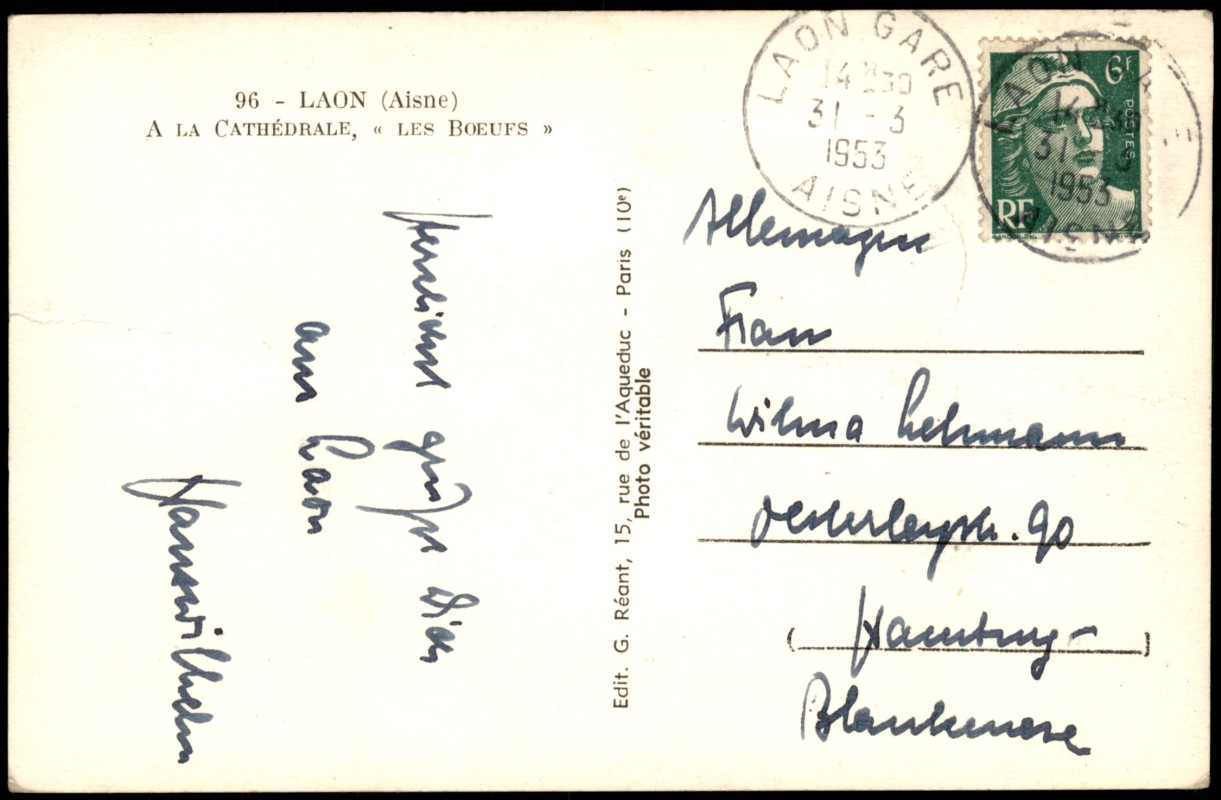 96 - LAON (Aisne)
A LA CATHÉDRALE, « LES BŒUFS »
Herzlichst grüßt Dich
aus Laon
Hanswilhelm
Edit. G. Réant, 15, rue de l'Aqueduc - Paris (10e)
Photo véritable
LAON GARE
14H30
31 - 3
1953
AISNE
6F
POSTES
RF
LAON GARE
14H30
31 - 3
1953
AISNE
Allemagne
Frau
Wilma Lehmann
Oesterleystr. 90
(Hamburg-)
Blankenese